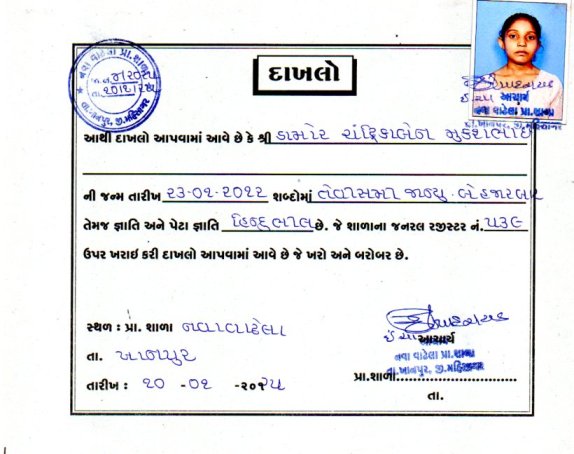 નવા વાટેલા પ્રા.શાળા
જા.નં. ૪/૨૦૨૫
તા. ૨૦/૨/૨૫
તા.ખાનપુર, જી.મહિસાગર
દાખલો
આચાર્ય
નવા વાટેલા પ્રા.શાળા
તા.ખાનપુર, જી.મહિસાગર
આથી દાખલો આપવામાં આવે છે કે શ્રી ડામોર ચંદ્રિકાબેન મુકેશભાઈ
ની જન્મ તારીખ ૨૩-૦૧-૨૦૧૨ શબ્દોમાં તેવીસમી જાન્યુ બેહજારબાર
તેમજ જ્ઞાતિ અને પેટા જ્ઞાતિ હિન્દુભીલ છે. જે શાળાના જનરલ રજીસ્ટર નં. ૫૩૯
ઉપર ખરાઇ કરી દાખલો આપવામાં આવે છે જે ખરો અને બરોબર છે.
સ્થળ : પ્રા. શાળા નવાવાટેલા
ઈ.ચા આચાર્ય
તા. ખાનપુર
નવા વાટેલા પ્રા.શાળા
પ્રા.શાળા
તા.ખાનપુર, જી.મહિસાગર
તારીખ : ૨૦ -૦૨ -૨૦૨૫
તા.